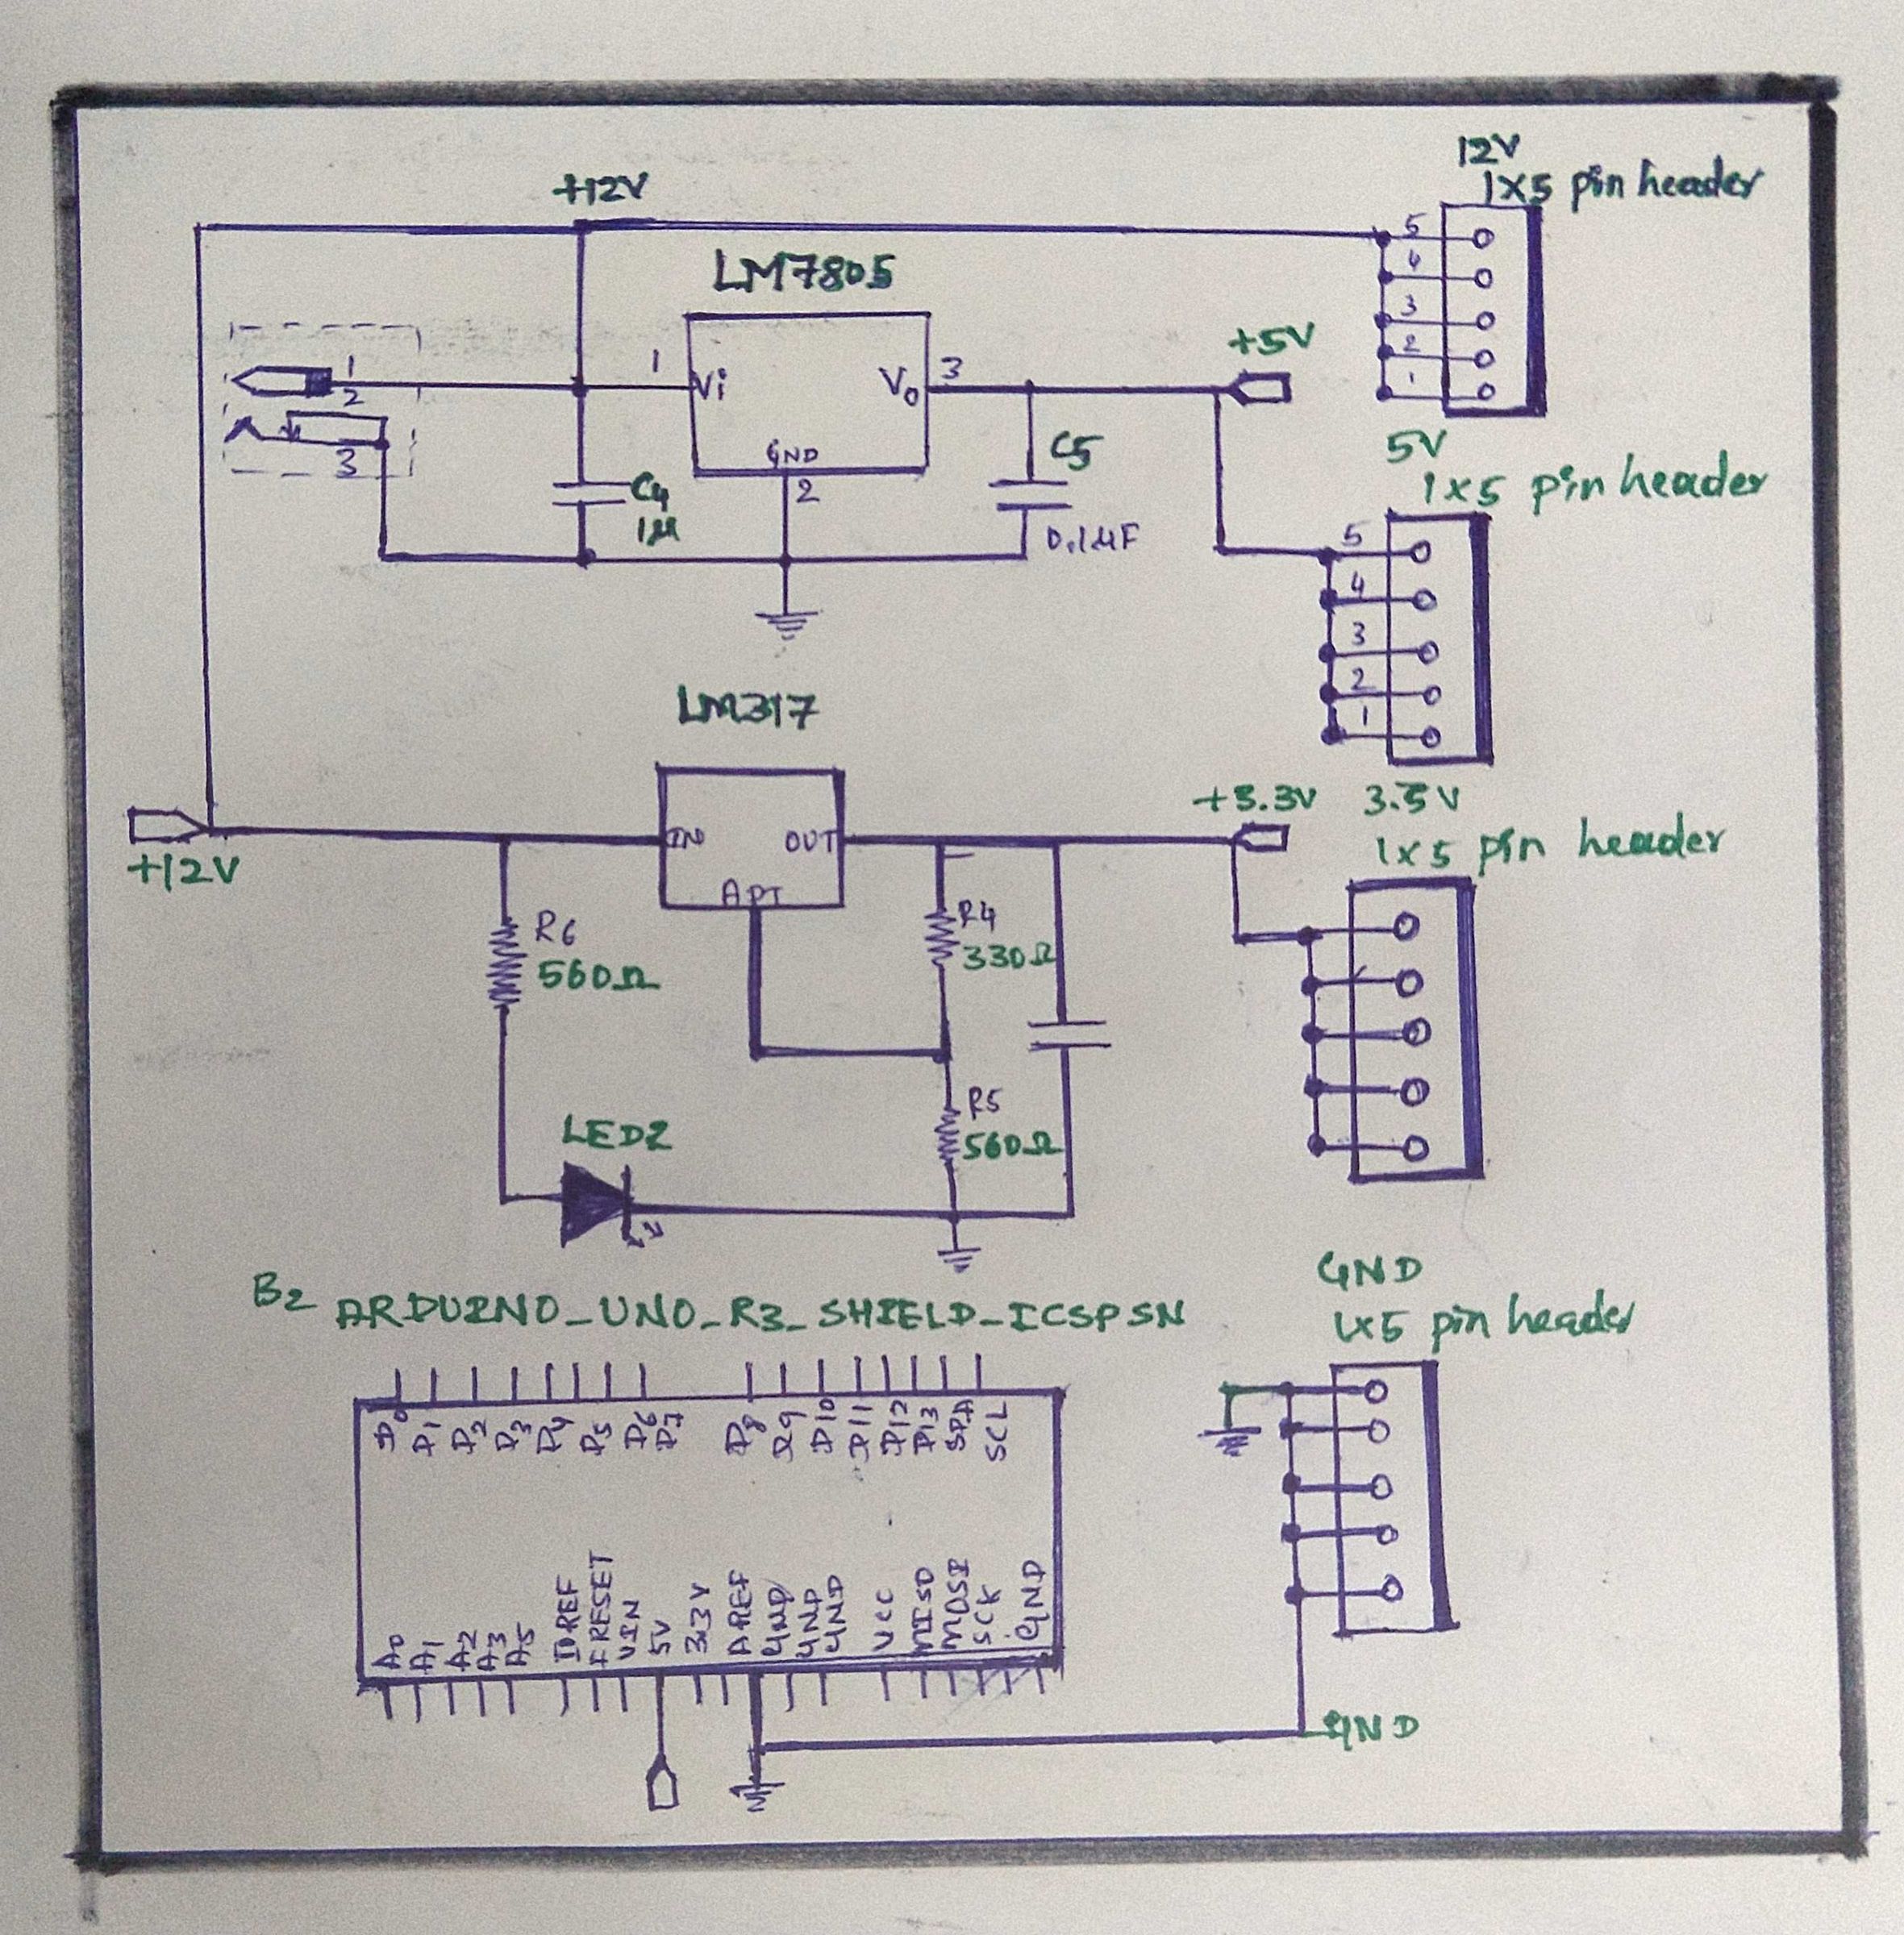 12V
1X5 pin header
+12V
LM7805
5
4
3
2
1
+5V
1
2
3
1
Vi
Vo
3
GND
2
C4
1µ
C5
0.1µF
5V
1x5 pin header
5
4
3
2
1
LM317
+12V
IN
OUT
ADJ
+3.3V
3.3V
1x5 pin header
R6
560Ω
R4
330Ω
R5
560Ω
LED2
GND
1x5 pin header
B2 ARDUINO_UNO_R3_SHIELD_ICSPSN
D0
D1
D2
D3
D4
D5
D6
D7
D8
D9
D10
D11
D12
D13
SDA
SCL
A0
A1
A2
A3
A5
IOREF
RESET
VIN
5V
3.3V
AREF
GND
GND
GND
VCC
MISO
MOSI
SCK
GND
GND